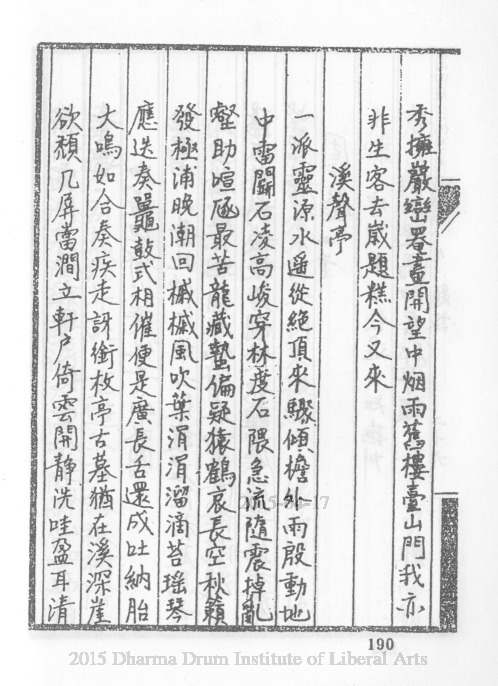 秀擁巖巒畧畫開望中烟雨舊樓臺山門我亦
非生客去歲題糕今又來
溪聲亭
一派靈源水遥從絶頂來驟傾檐外雨殷動地
中雷鬬石凌高峻穿林度石隈急流隨震掉亂
壑助喧豗最苦龍藏蟄偏疑猿鶴哀長空秋籟
發極浦晚潮回槭槭風吹葉涓涓溜滴苔瑶琴
應迭奏鼉鼓式相催便是廣長舌還成吐納胎
大鳴如合奏疾走訝銜枚亭古基猶在溪深崖
欲頹几屏當澗立軒戶倚雲開靜洗哇盈耳清
2015-04-17
190
2015 Dharma Drum Institute of Liberal Arts